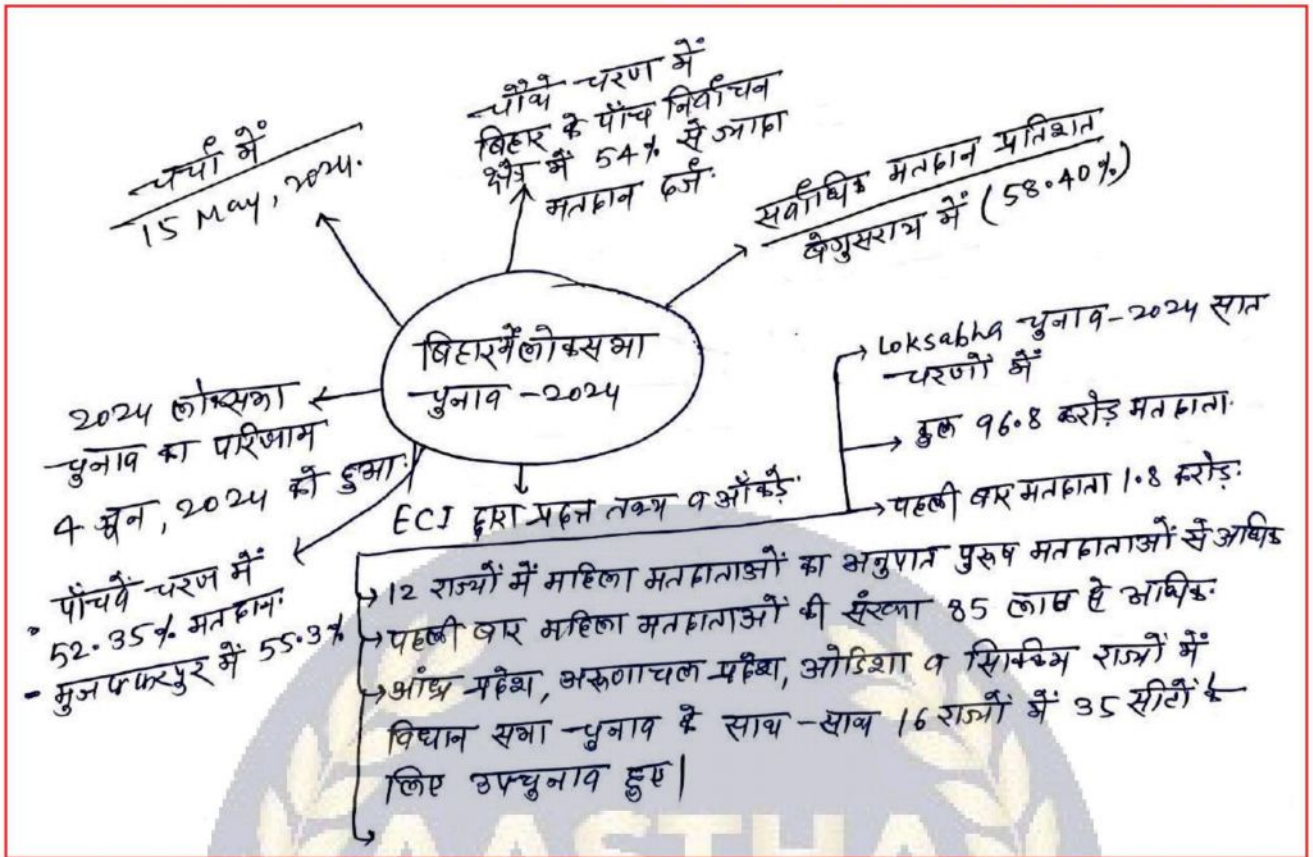 चर्चा में
15 May, 2024.
चौथे चरण में
बिहार के पाँच निर्वाचन
क्षेत्र में 54% से ज्यादा
मतदान दर्ज.
सर्वाधिक मतदान प्रतिशत
बेगुसराय में (58.40%)
बिहार में लोकसभा
चुनाव - 2024
2024 लोकसभा
चुनाव का परिणाम
4 जून, 2024 को हुआ.
पाँचवें चरण में
52.35% मतदान.
- मुजफ्फरपुर में 55.3%
ECI द्वारा प्रदत्त तथ्य व आँकड़े.
Loksabha चुनाव-2024 सात
चरणों में
कुल 96.8 करोड़ मतदाता.
पहली बार मतदाता 1.8 करोड़.
12 राज्यों में महिला मतदाताओं का अनुपात पुरूष मतदाताओं से अधिक
पहली बार महिला मतदाताओं की संख्या 85 लाख से अधिक.
आंध्र प्रदेश, अरूणाचल प्रदेश, ओडिशा व सिक्किम राज्यों में
विधान सभा चुनाव के साथ-साथ 16 राज्यों में 35 सीटों के
लिए उपचुनाव हुए|
AASTHA